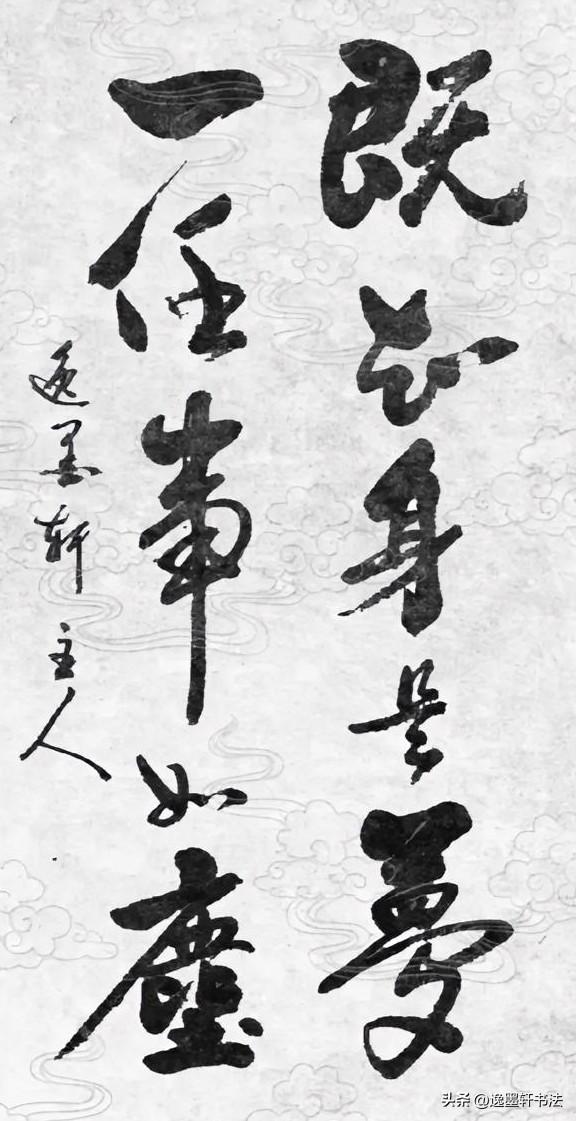 既知身是梦
一任事如尘
逸墨轩主人
头条 @逸墨轩书法